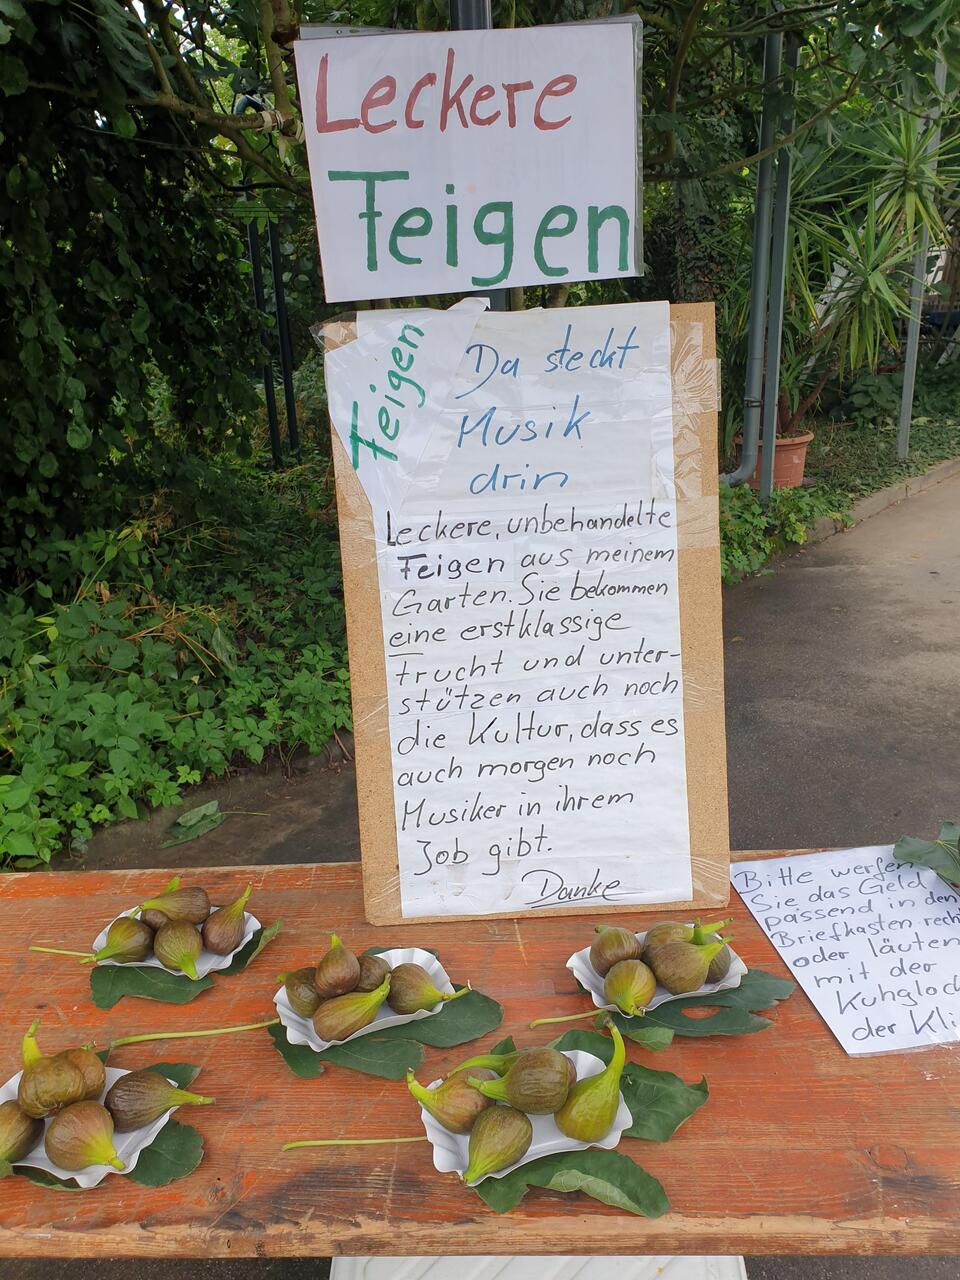 Leckere
Feigen
Feigen
Da steckt
Musik
drin
Leckere, unbehandelte
Feigen aus meinem
Garten. Sie bekommen
eine erstklassige
Frucht und unter-
stützen auch noch
die Kultur, dass es
auch morgen noch
Musiker in ihrem
Job gibt.
Danke
Bitte werfen
Sie das Geld
passend in den
Briefkasten rech
oder läuten
mit der
Kuhgloc
der Kli